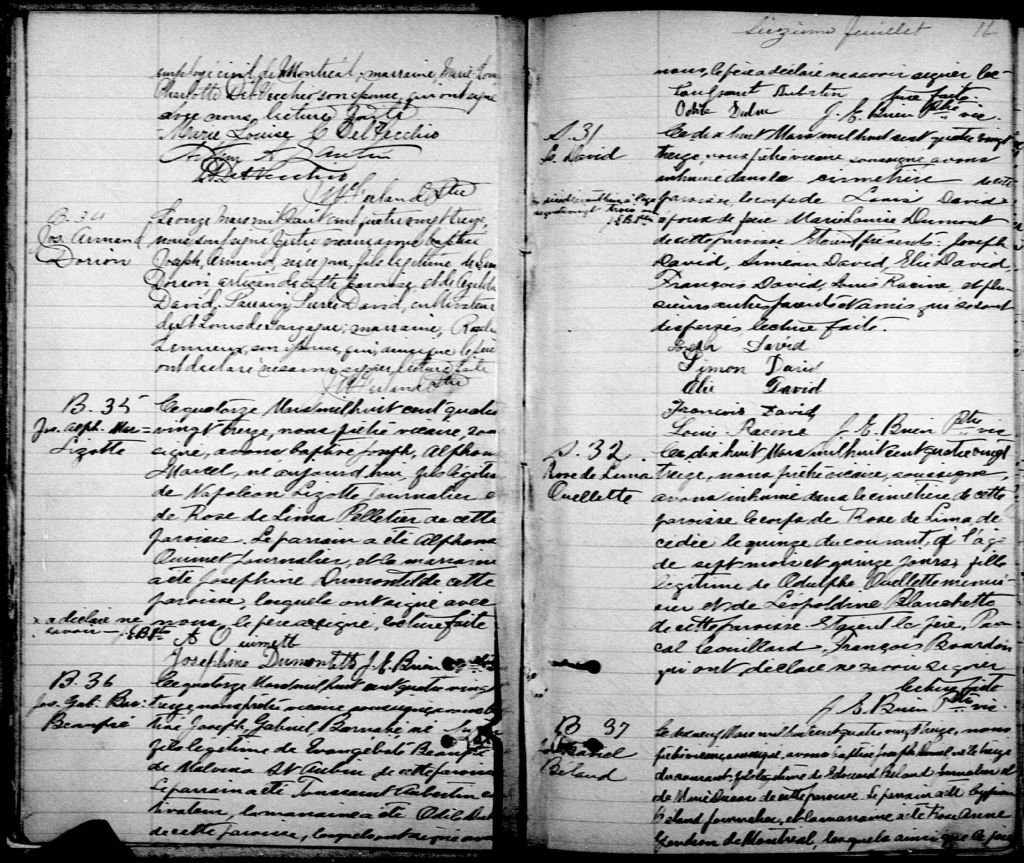 employé civil de Montréal, marraine, Marie Louise
Charlotte DelVecchio son épouse, qui ont signé
avec nous, lecture faite
Marie Louise C DelVecchio
DelVecchio
Ptre
B. 34
Jos. Armand
Dorion
Le onze mars mil huit cent quatre vingt treize,
nous soussigné Prêtre vicaire avons baptisé
Joseph, Armand, né ce jour, fils légitime de
Dorion artisan de cette paroisse, et de
David, Parrain, Pierre David, cultivateur
de St Louis de Gonzague; marraine, Rose
son épouse, qui, ainsi que le père
ont déclaré ne savoir signer, lecture faite
Ptre
B. 35
Jos. Alph. Mar=
Lizotte
Le quatorze Mars mil huit cent quatre
vingt treize, nous prêtre vicaire, sous
signé, avons baptisé Joseph, Alphonse
Marcel, né aujourd'hui, fils légitime
de Napoléon Lizotte, Journalier et
de Rose de Lima Pelletier de cette
paroisse. Le parrain a été Alphonse
Ouimet Journalier, et la marraine
a été Josephine Dumontet de cette
paroisse, lesquels ont signé avec
x a déclaré ne
savoir
nous, le père a signé, lecture faite
A Ouimett
Josephine Dumontet J. E. Buen
B. 36
Jos. Gab. Bar=
Beaupré
Le quatorze Mars mil huit cent quatre vingt
treize, nous prêtre vicaire soussigné avons bap
tisé Joseph, Gabriel Barnabé, né
fils légitime de Evangeliste Beaupré
de Malvina St Aubin de cette paroisse
Le parrain a été Toussaint Aubertin
la marraine a été Odile
de cette paroisse, lesquels ont signé avec
Seizième feuillet 16
nous, le père a déclaré ne savoir signer lec-
Toussaint Aubertin ture faite
J. E. Buen Ptre vic.
S. 31
Ls. David
Le dix huit Mars mil huit cent quatre vingt
treize, nous prêtre vicaire, soussigné avons
inhumé dans le cimetière de cette
paroisse, le corps de Louis David
époux de feue Marie Louise Dumont
de cette paroisse. Etaient présents: Joseph
David, Simeon David, Elie David,
François David, Louis Racine, et plu-
sieurs autres parents et amis, qui se sont
dispersés lecture faite.
Joseph David
Simon David
Elie David
Francois David
Louis Racine J. E. Buen Ptre vic
S. 32
Rose de Lima
Ouellette
Le dix huit Mars mil huit cent quatre vingt
treize, nous prêtre vicaire, soussigné
avons inhumé dans le cimetière de cette
paroisse le corps de Rose de Lima, dé
cédée le quinze du courant, à l'age
de sept mois et quinze jours, fille
légitime de Adolphe Ouellette menui-
sier et de Léopoldine Blanchette
de cette paroisse. Etaient le père, Pas
cal Couillard. François Bourdon
qui ont déclaré ne savoir signer
lecture faite
J. E. Buen Ptre vic.
B 37
Béland
Le Mars mil huit cent quatre vingt treize, nous
prêtre vicaire soussigné, avons baptisé Joseph né le treize
du courant, fils légitime de Edouard Béland Journalier et
de Marie de cette paroisse. Le parrain a été
Béland Journalier, et la marraine a été Rose Anne
Gendron de Montréal, lesquels ainsi que le père